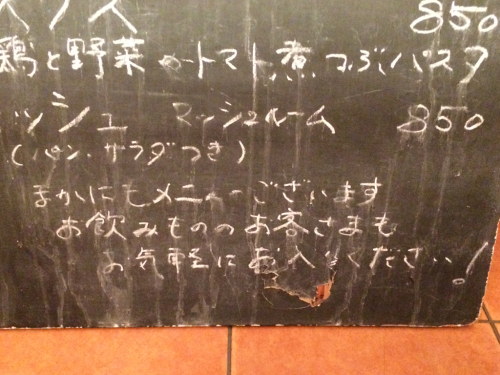 850
鶏と野菜のトマト煮つぶパスタ
ッシュ マッシュルーム 850
(パン・サラダつき)
ほかにもメニューございます
お飲みもののお客さまも
お気軽にお入りください!